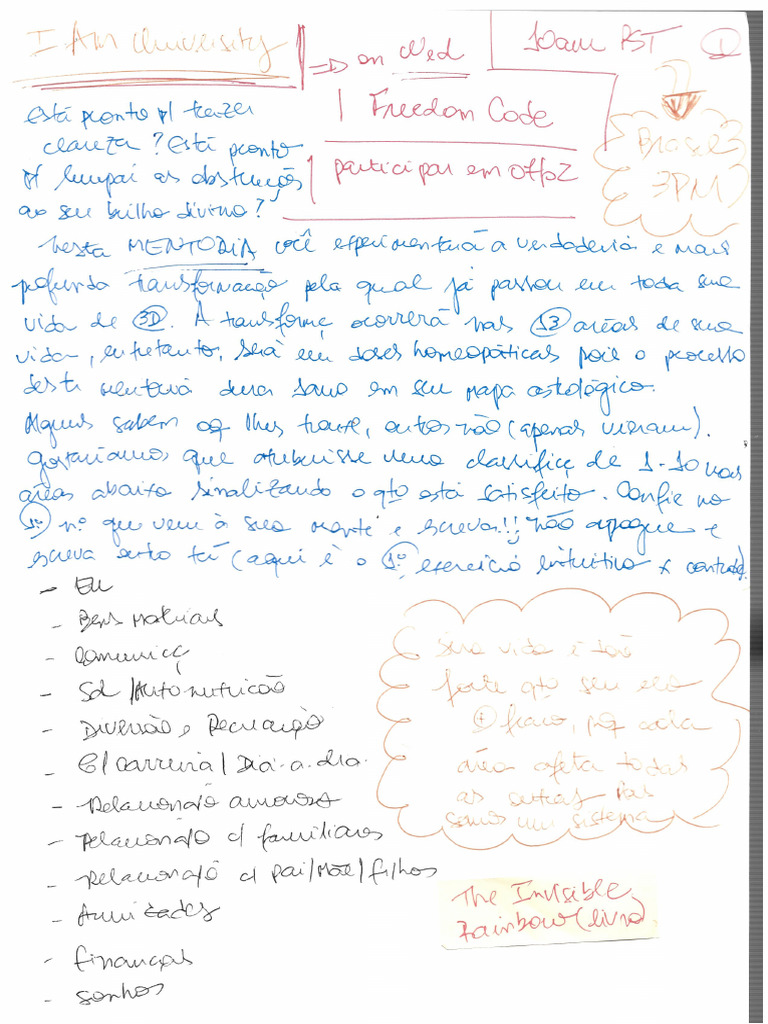 I Am University
→ on Wed
10am PST
1
Freedom Code
participar em 0ffo2
Brasil
3PM
Está pronto p/ trazer
clareza? Está pronto
p/ limpar as obstruções
ao seu brilho divino?
Nesta MENTORIA você experimentará a verdadeira e mais
profunda transformação pela qual já passou em toda sua
vida de 3D. A transformç ocorrerá nas 13 áreas de sua
vida, entretanto, será em doses homeopáticas pois o processo
desta mentoria dura 1ano em seu mapa astrológico.
Alguns sabem oq lhes trouxe, outros não (apenas vieram).
gostaríamos que atribuisse uma classificç de 1-10 nas
áreas abaixo sinalizando o qto está satisfeito. Confie no
1º nº que vem à sua mente e escreva!!! não apague e
escreva outro tá (aqui é o 1º exercício intuitivo
- Eu
- Bens Materiais
- Comunicç
- Sol/Autonutricão
- Diversão e Recreação
- C/Carreira/Dia-a-dia.
- Relacionato amoroso
- Relacionato c/ familiares
- Relacionato c/ Pai/Mãe/filhos
- Amizades
- finanças
- sonhos
Sua vida é tão
forte qto seu elo
+ fraco, pq cada
área afeta todas
as outras pois
somos um sistema
The Invisible
Rainbow (livro)